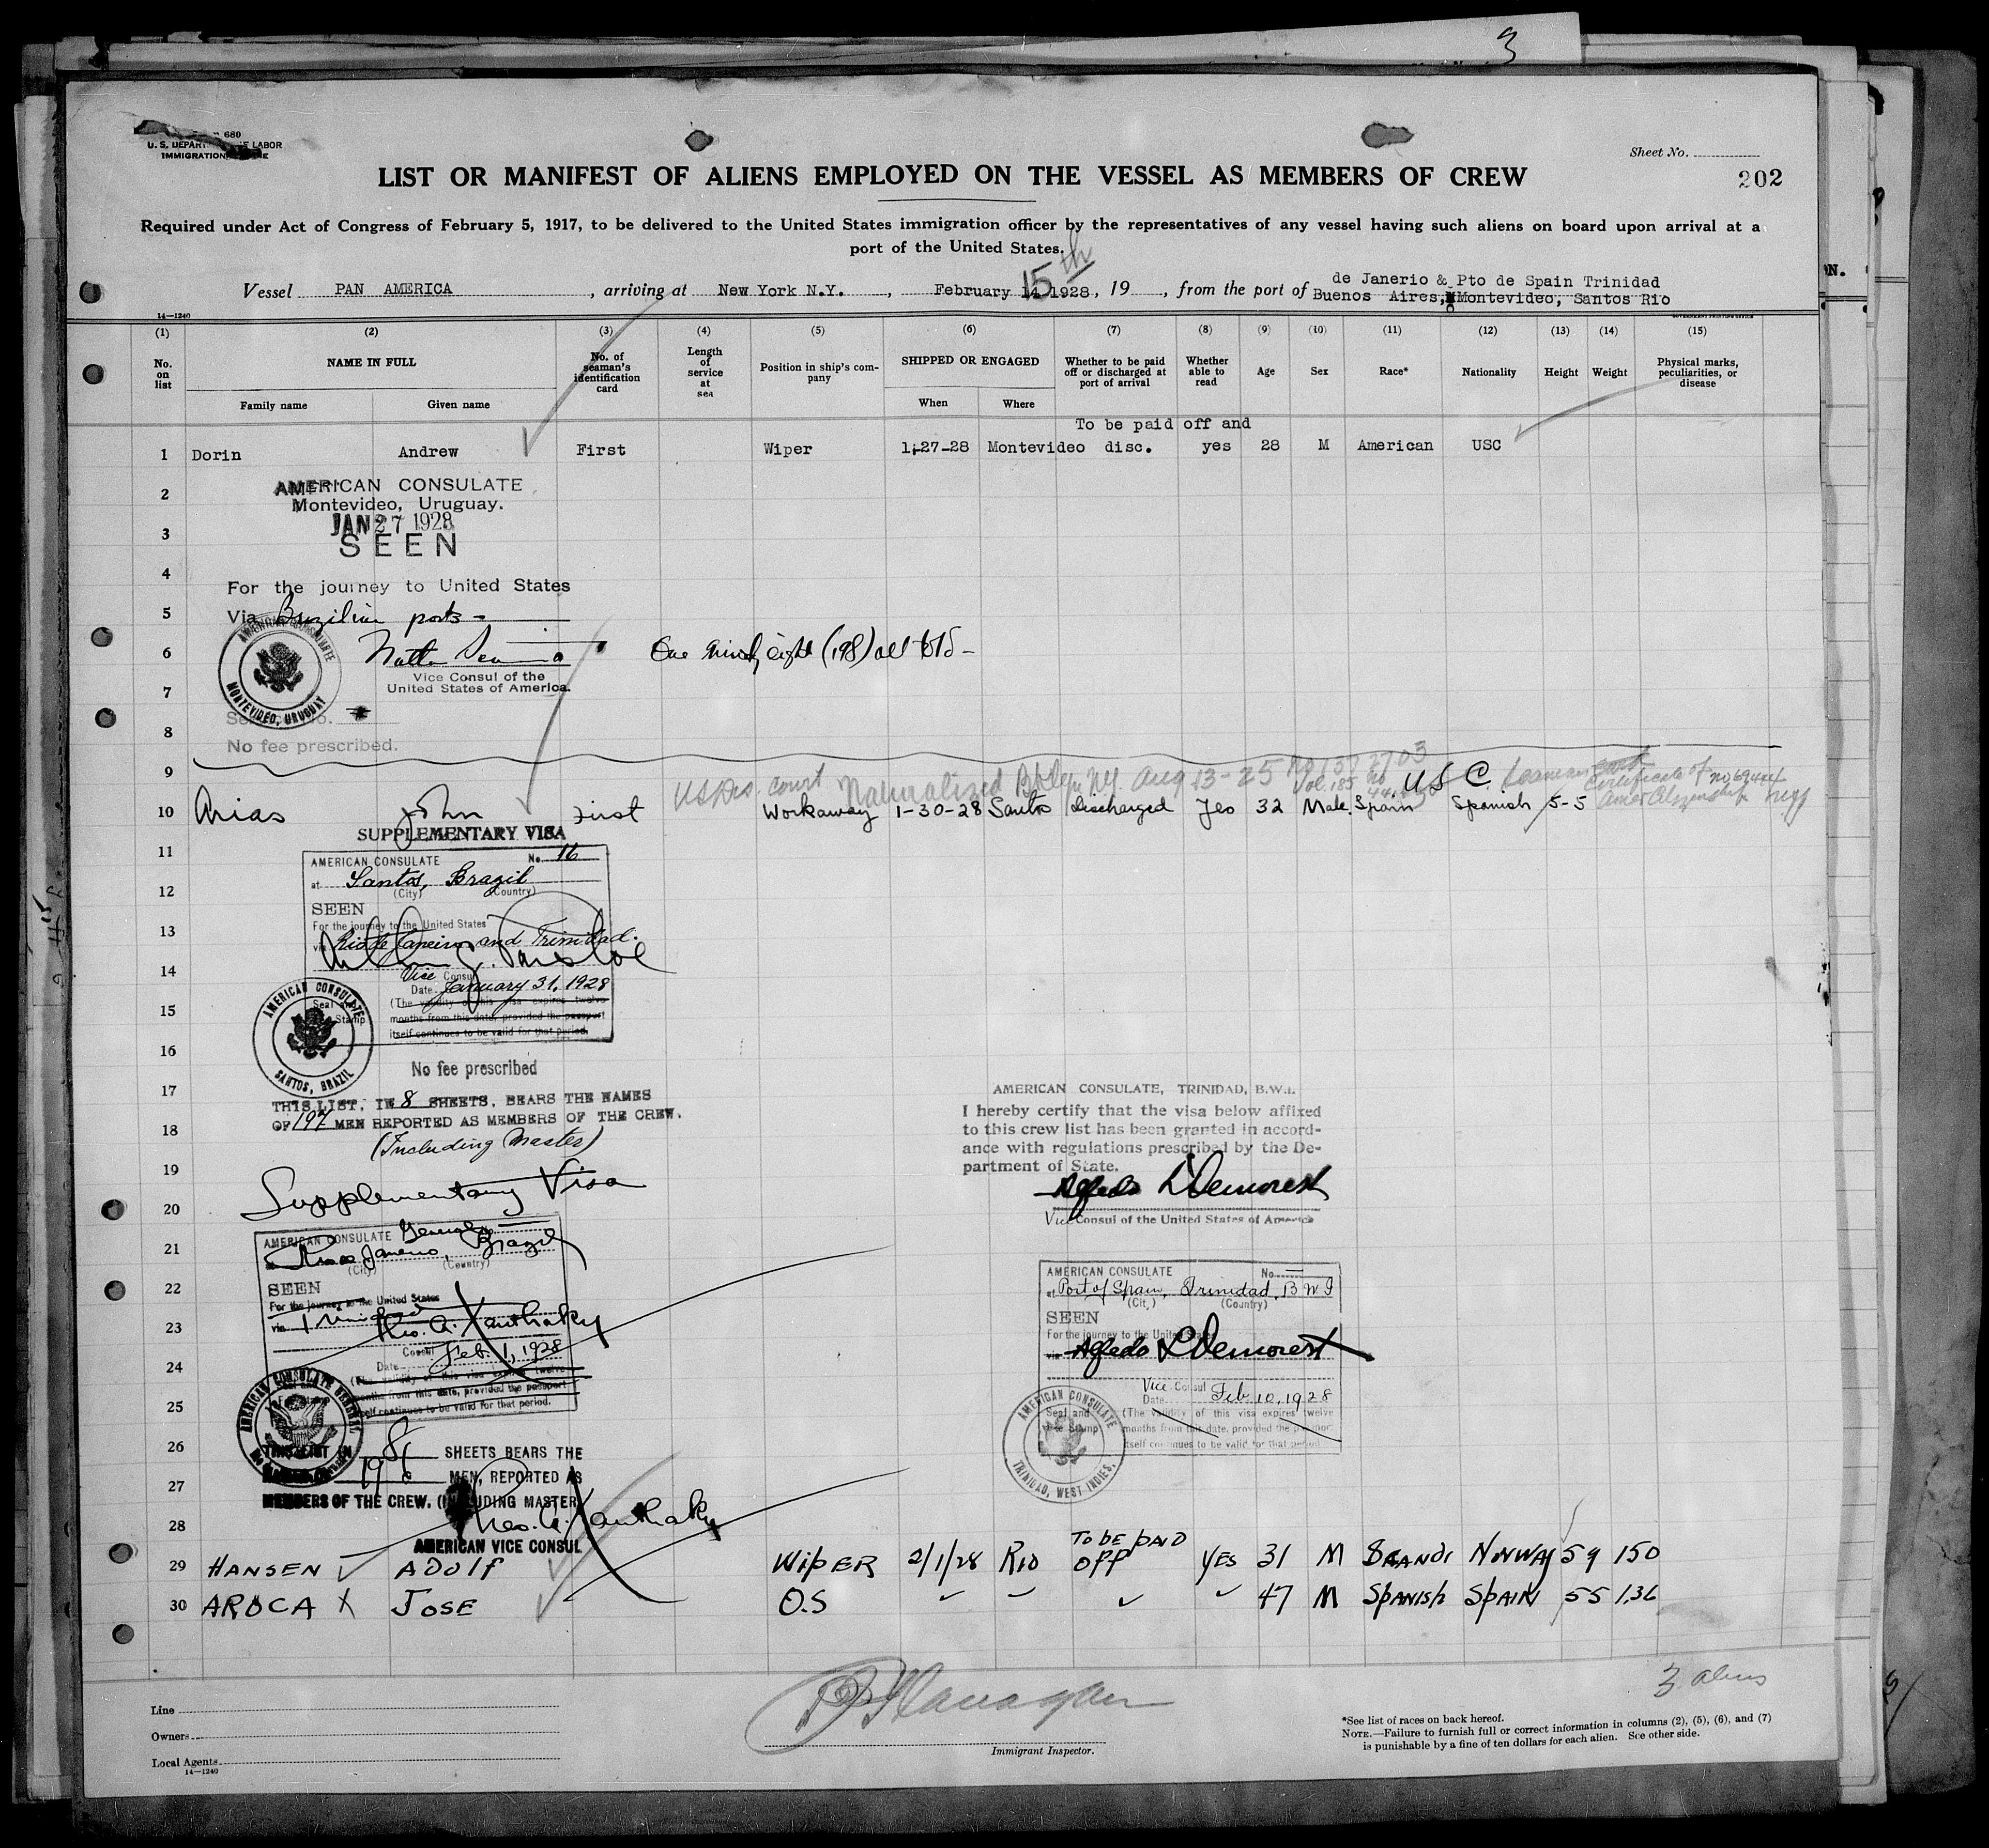 3
680
U. S. DEPAR LABOR
IMMIGRATION
Sheet No.
LIST OR MANIFEST OF ALIENS EMPLOYED ON THE VESSEL AS MEMBERS OF CREW
202
Required under Act of Congress of February 5, 1917, to be delivered to the United States immigration officer by the representatives of any vessel having such aliens on board upon arrival at a
port of the United States.
15th
de Janerio & Pto de Spain Trinidad
Vessel PAN AMERICA, arriving at New York N.Y., February 14 1928, 19, from the port of Buenos Aires, Montevideo, Santos Rio
14—1240
(1) (2) (3) (4) (5) (6) (7) (8) (9) (10) (11) (12) (13) (14) (15)
No. on list
NAME IN FULL
Family name
Given name
No. of seaman's identification card
Length of service at sea
Position in ship's company
SHIPPED OR ENGAGED
When
Where
Whether to be paid off or discharged at port of arrival
Whether able to read
Age
Sex
Race*
Nationality
Height
Weight
Physical marks, peculiarities, or disease
To be paid off and
1 Dorin Andrew First Wiper 1-27-28 Montevideo disc. yes 28 M American USC
2
AMERICAN CONSULATE
Montevideo, Uruguay.
3
JAN 27 1928
SEEN
4
For the journey to United States
5
Via Brazilian ports -
6
One ninety eight (198) all told -
Vice Consul of the
United States of America.
7
AMERICAN CONSULATE
MONTEVIDEO, URUGUAY
8
No fee prescribed.
9
US Dis. Court Naturalized Bklyn NY. Aug 13-25 No
Vol. 185 no
USC
Certificate of
Amer Citizenship
10 Arias John First Workaway 1-30-28 Santos Discharged Yes 32 Male Spain Spanish 5-5
SUPPLEMENTARY VISA
11
AMERICAN CONSULATE No. 16
12
at Santos, Brazil
(City) (Country)
SEEN
13
For the journey to the United States
via Rio de Janeiro and Trinidad.
14
Vice Consul
Date January 31, 1928
15
(The validity of this visa expires twelve
months from this date, provided the passport
itself continues to be valid for that period.
Seal and
Stamp
AMERICAN CONSULATE
SANTOS, BRAZIL
16
No fee prescribed
17
THIS LIST, IN 8 SHEETS, BEARS THE NAMES
OF 197 MEN REPORTED AS MEMBERS OF THE CREW.
18
(Including Master)
AMERICAN CONSULATE, TRINIDAD, B.W.I.
I hereby certify that the visa below affixed
to this crew list has been granted in accord-
ance with regulations prescribed by the De-
partment of State.
19
Supplementary Visa
Alfredo L Demorest
20
Vice Consul of the United States of America
AMERICAN CONSULATE General
21
Rio de Janeiro, Brazil
(City) (Country)
22
SEEN
For the journey to the United States
23
via Trinidad
Theo. A. Xanthaky
Consul
24
Date Feb. 1, 1928
(The validity of this visa expires twelve
months from this date, provided the passport
25
itself continues to be valid for that period.
AMERICAN CONSULATE No.
at Port of Spain, Trinidad, B W I
(City) (Country)
SEEN
For the journey to the United States
via Alfredo L Demorest
Vice Consul
Date Feb. 10, 1928
Seal and
Stamp
(The validity of this visa expires twelve
months from this date, provided the passport
itself continues to be valid for that period
AMERICAN CONSULATE
TRINIDAD, WEST INDIES.
26
THIS LIST IN 8 SHEETS BEARS THE
198 MEN, REPORTED AS
27
MEMBERS OF THE CREW. (INCLUDING MASTER)
Theo. A. Xanthaky
28
AMERICAN VICE CONSUL
To be paid
29 HANSEN ADOLF WIPER 2/1/28 RIO OFF YES 31 M SCANDI NORWAY 5 9 150
30 AROCA X JOSE O.S 47 M SPANISH SPAIN 5 5 136
3 aliens
Line
Owners
Local Agents
14—1240
Flanagan
Immigrant Inspector.
*See list of races on back hereof.
NOTE.—Failure to furnish full or correct information in columns (2), (5), (6), and (7)
is punishable by a fine of ten dollars for each alien. See other side.